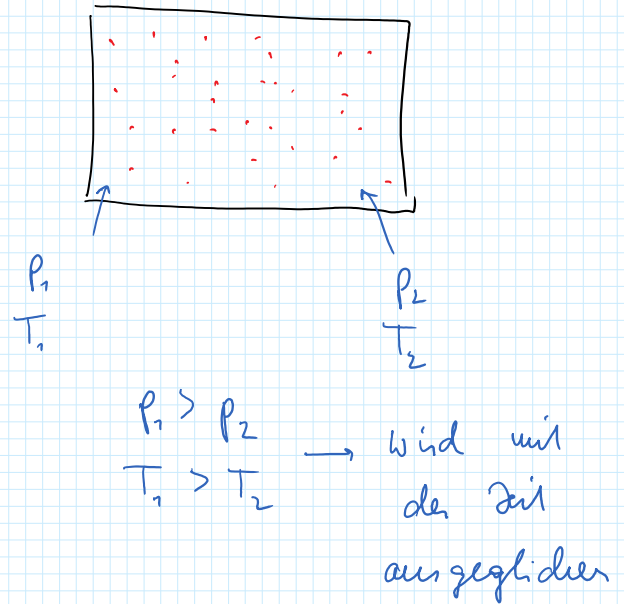 P₁
T₁
P₂
T₂
P₁ > P₂
T₁ > T₂ → wird mit
der Zeit
ausgeglichen